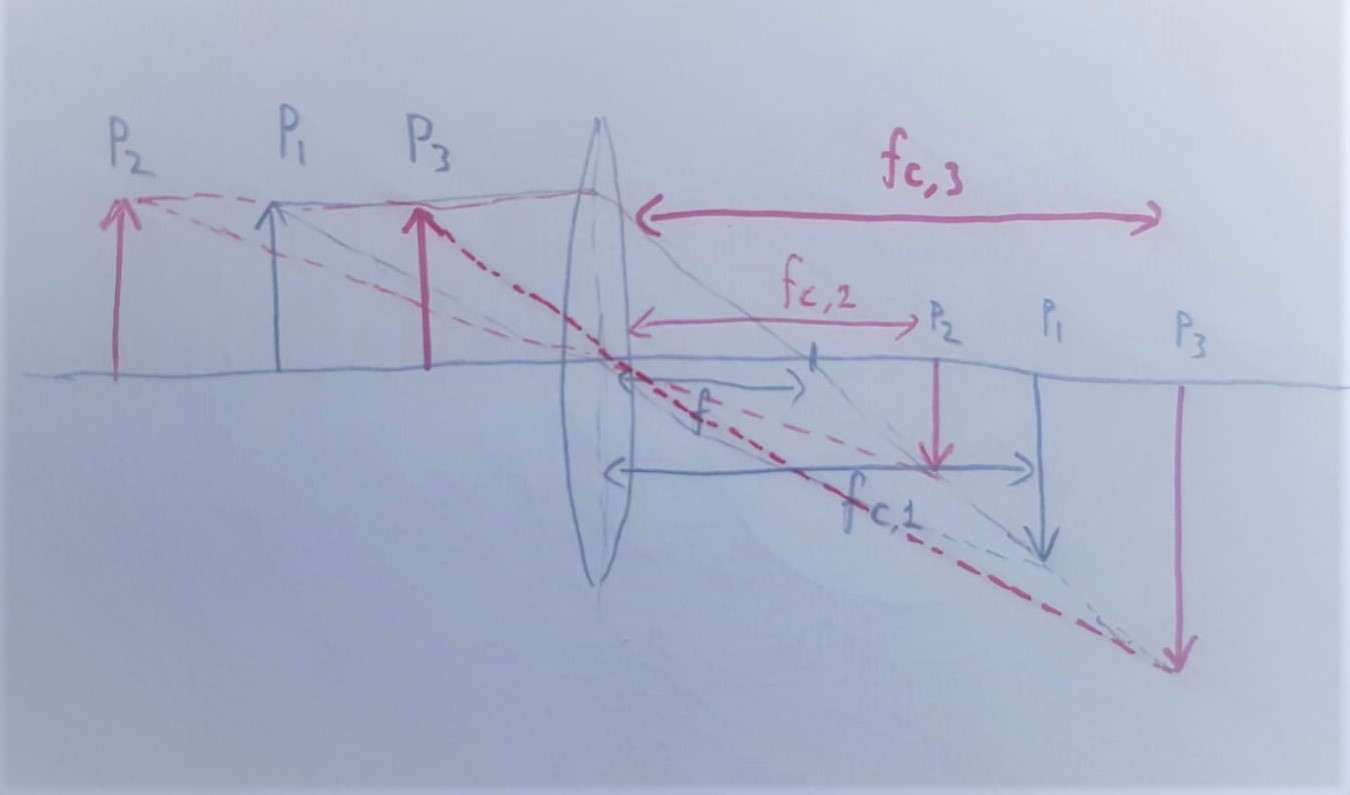 P₂
P₁
P₃
f_c,3
f_c,2
P₂
P₁
P₃
f
f_c,1